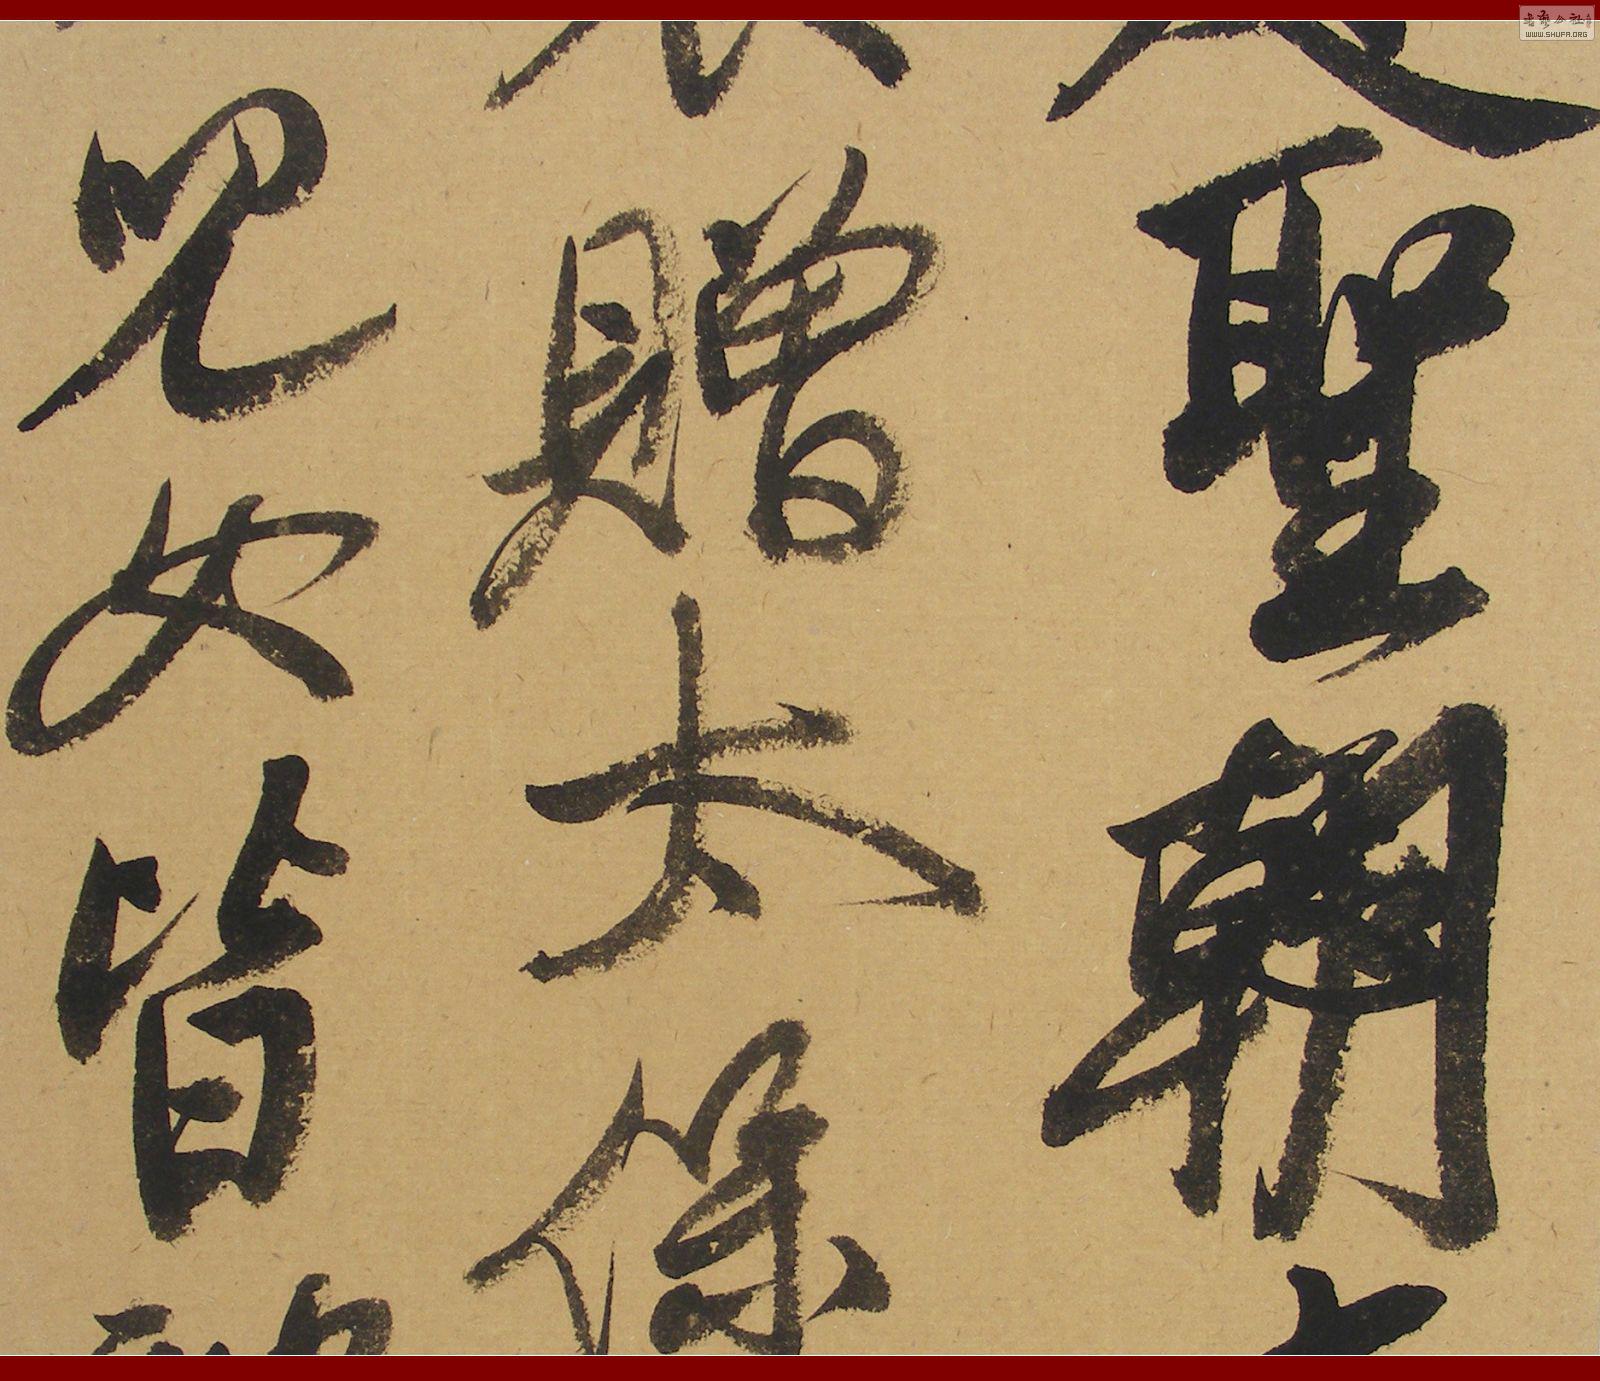 聖朝
贈太保
兒女皆
WWW.SHUFA.ORG